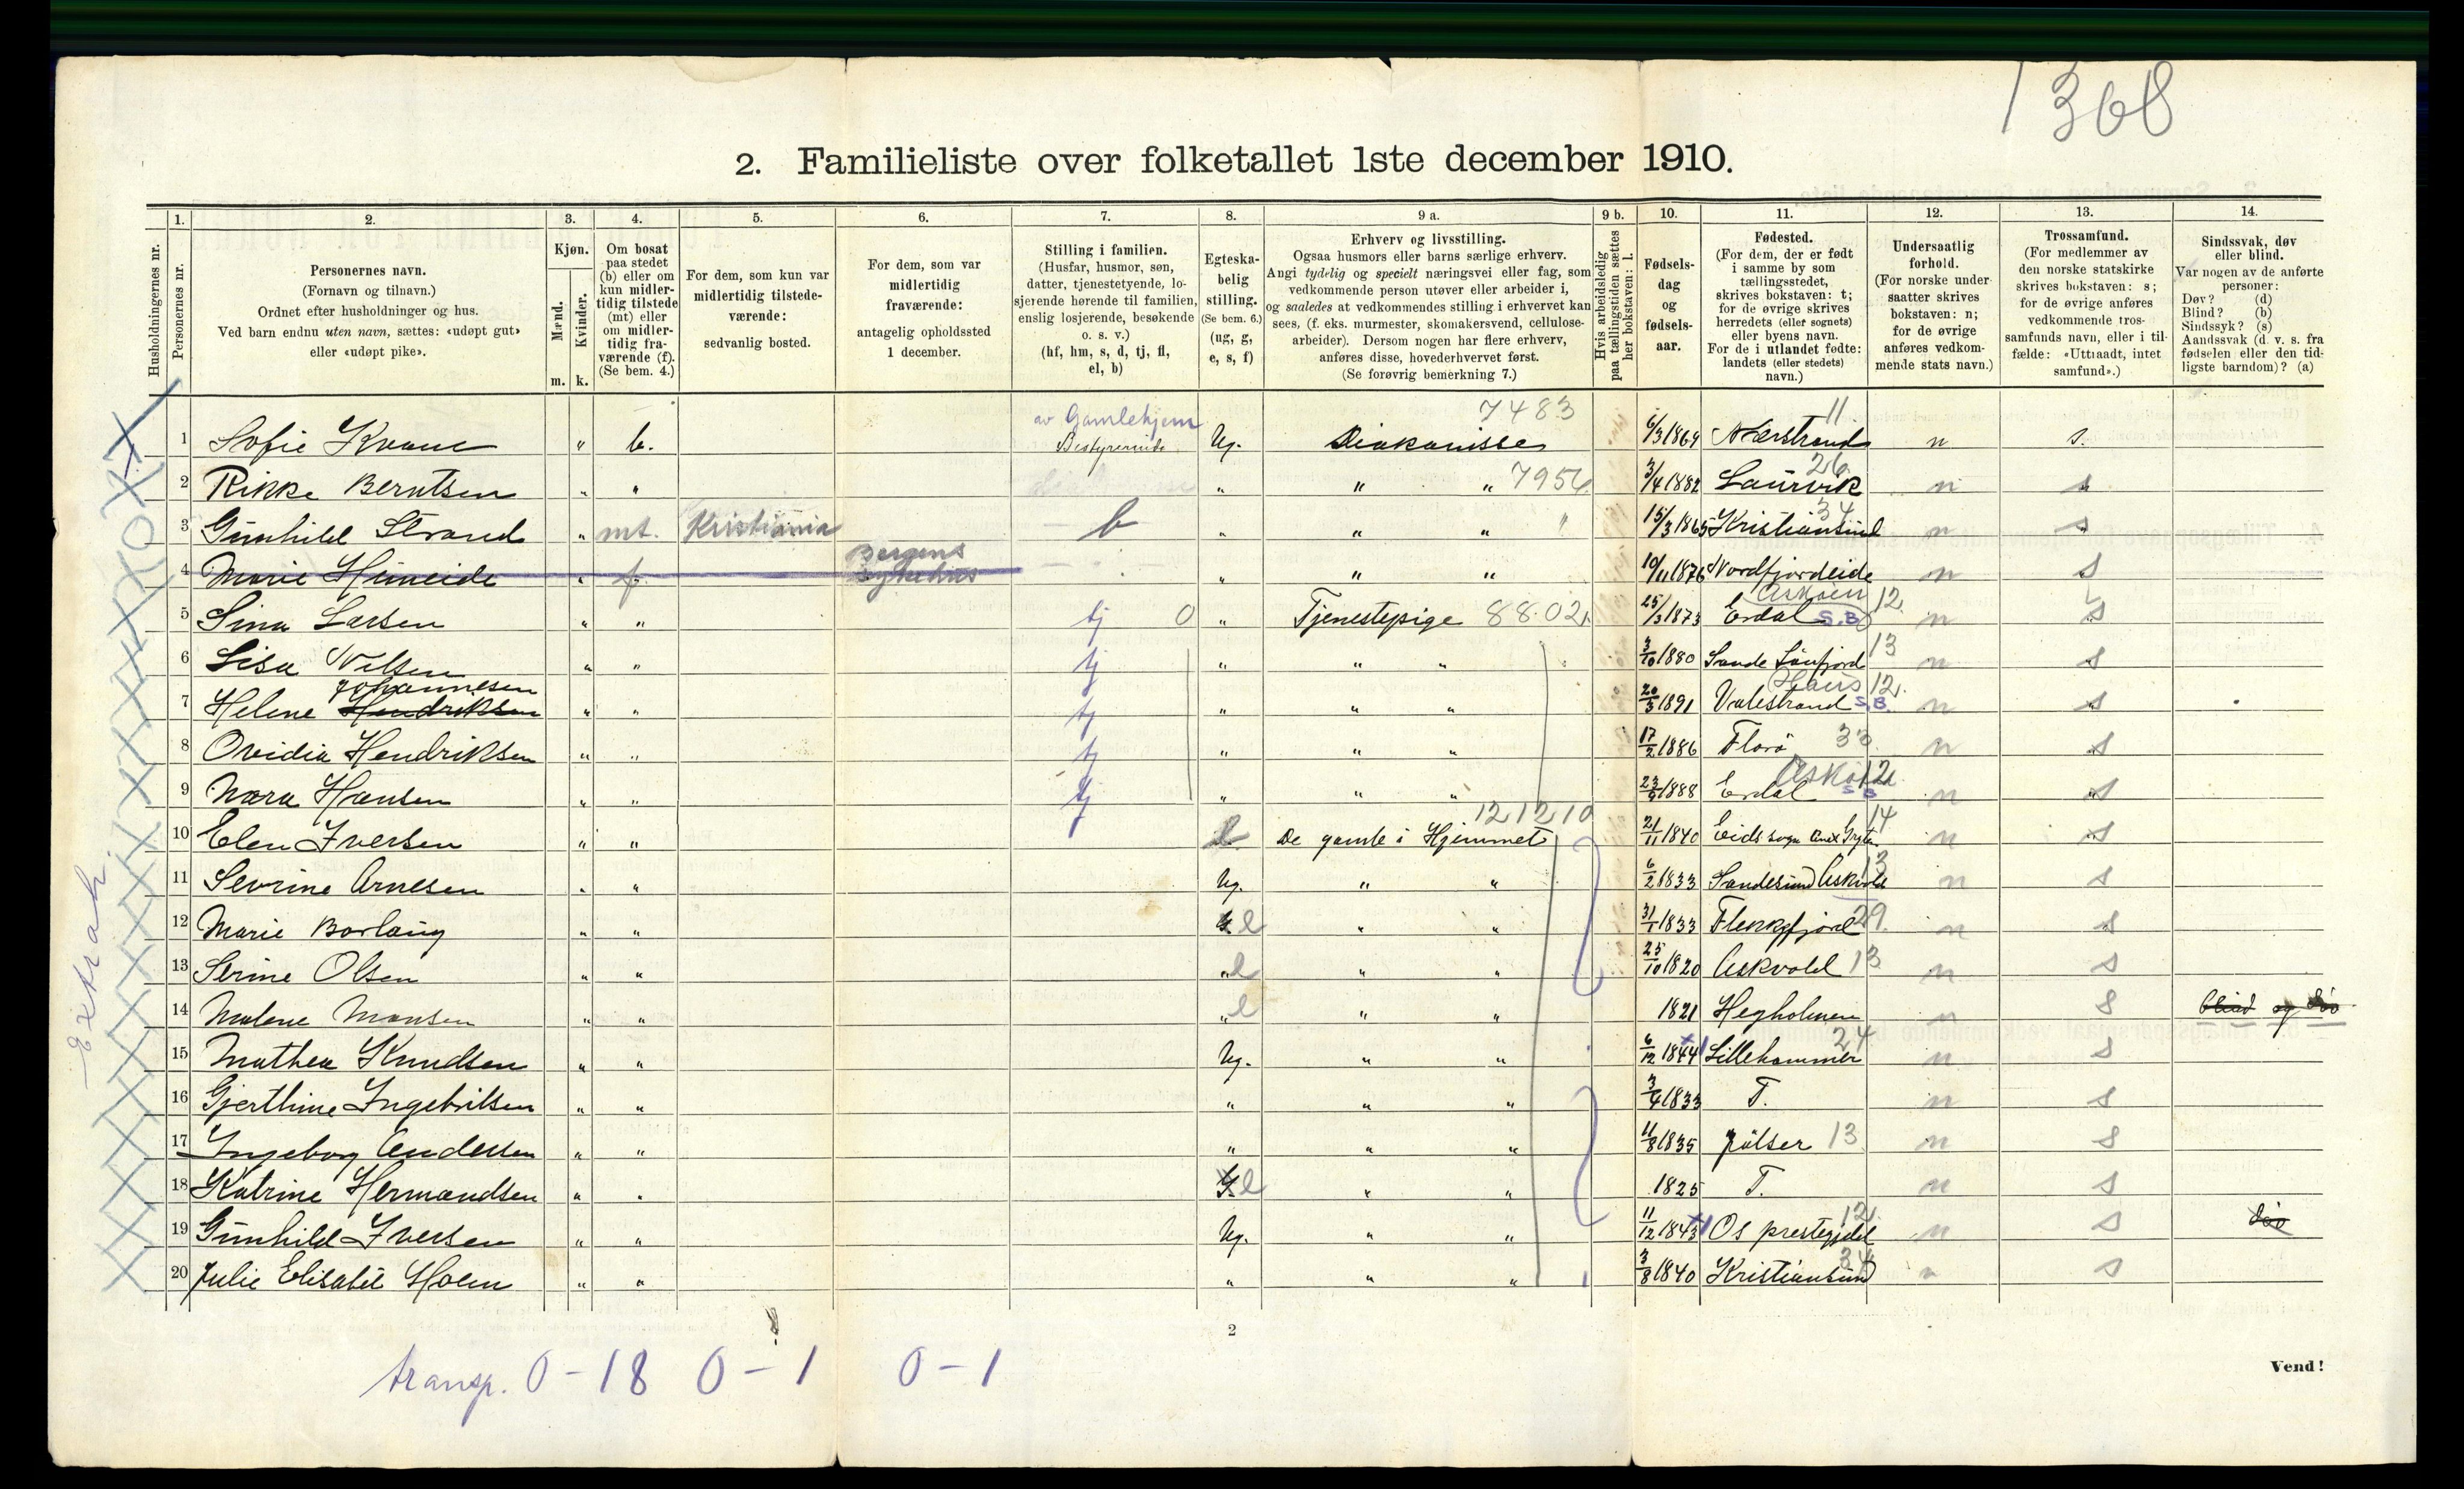 1368
2. Familieliste over folketallet 1ste december 1910.
1. 2. 3. 4. 5. 6. 7. 8. 9 a. 9 b. 10. 11. 12. 13. 14.
Husholdningernes nr.
Personernes nr.
Personernes navn.
(Fornavn og tilnavn.)
Ordnet efter husholdninger og hus.
Ved barn endnu uten navn, sættes: «udøpt gut»
eller «udøpt pike».
Kjøn.
Mænd.
Kvinder.
m. k.
Om bosat
paa stedet
(b) eller om
kun midler-
tidig tilstede
(mt) eller
om midler-
tidig fra-
værende (f).
(Se bem. 4.)
For dem, som kun var
midlertidig tilstede-
værende:
sedvanlig bosted.
For dem, som var
midlertidig
fraværende:
antagelig opholdssted
1 december.
Stilling i familien.
(Husfar, husmor, søn,
datter, tjenestetyende, lo-
sjerende hørende til familien,
enslig losjerende, besøkende
o. s. v.)
(hf, hm, s, d, tj, fl,
el, b)
Egteska-
belig
stilling.
(Se bem. 6.)
(ug, g,
e, s, f)
Erhverv og livsstilling.
Ogsaa husmors eller barns særlige erhverv.
Angi tydelig og specielt næringsvei eller fag, som
vedkommende person utøver eller arbeider i,
og saaledes at vedkommendes stilling i erhvervet kan
sees, (f. eks. murmester, skomakersvend, cellulose-
arbeider). Dersom nogen har flere erhverv,
anføres disse, hovederhvervet først.
(Se forøvrig bemerkning 7.)
Hvis arbeidsledig
paa tællingstiden sættes
her bokstaven: l.
Fødsels-
dag
og
fødsels-
aar.
Fødested.
(For dem, der er født
i samme by som
tællingsstedet,
skrives bokstaven: t;
for de øvrige skrives
herredets (eller sognets)
eller byens navn.
For de i utlandet fødte:
landets (eller stedets)
navn.)
Undersaatlig
forhold.
(For norske under-
saatter skrives
bokstaven: n;
for de øvrige
anføres vedkom-
mende stats navn.)
Trossamfund.
(For medlemmer av
den norske statskirke
skrives bokstaven: s;
for de øvrige anføres
vedkommende tros-
samfunds navn, eller i til-
fælde: «Uttraadt, intet
samfund».)
Sindssvak, døv
eller blind.
Var nogen av de anførte
personer:
Døv? (d)
Blind? (b)
Sindssyk? (s)
Aandssvak (d. v. s. fra
fødselen eller den tid-
ligste barndom)? (a)
av Gamlehjem 7483 11
1 Sofie Kvame " b. Bestyrerinde Ug. Diakonisse 6/3 1869 Nærstrand n s.
2 Rikke Berntsen " " " " " 7954 3/4 1882 Laurvik 26 n s
3 Gunhild Strand " mt. Kristiania b " " " 15/3 1865 Kristiansund 34 n s
Bergens
4 Marie Himeide " f. Sykehus " " " 10/11 1876 Nordfjordeide n s
Askøen 12
5 Sina Larsen " " tj 0 " Tjenestepige 88.02 25/3 1873 Erdal S.B n s
6 Lisa Nilsen " " tj " " " 3/10 1880 Sande Sønfjord 13 n s
Johannesen Haus 12.
7 Helene Hendriksen " " tj " " " 20/3 1891 Valestrand S.B. n s
8 Ovidia Hendriksen " " tj " " " 17/2 1886 Florø 33 n s
Askø 12
9 Nora Hansen " " tj " " " 23/9 1888 Erdal S B n s
12 12 10 14
10 Elen Iversen " " De gamle i Hjemmet 21/11 1840 Eids sogn n s
11 Sevrine Arnesen " " Ug. " " 6/2 1833 Sandesund Askvold 13 n s
12 Marie Borlaug " " e " " 31/1 1833 Flekkefjord 29 n s
13 Serine Olsen " " e " " 25/10 1820 Askvold 13 n s
14 Malene Monsen " " e " " 1821 Hegholmen n s blind og døv
15 Mathea Knudsen " " Ug. " " 6/12 1844 Lillehammer 24 n s
16 Gjerthine Ingebritsen " " " " " 3/4 1833 T. n s
17 Ingeborg Andersen " " " " " 11/8 1835 Jølser 13 n s
18 Katrine Hermandsen " " e " " 1825 T. n s
19 Gunhild Iversen " " Ug. " " 11/12 1843 Os prestegjeld 12 n s døv
20 Julie Elisabet Holm " " " " " 3/8 1840 Kristiansund 34 n s
Extrah.
2
transp. 0-18 0-1 0-1
Vend!